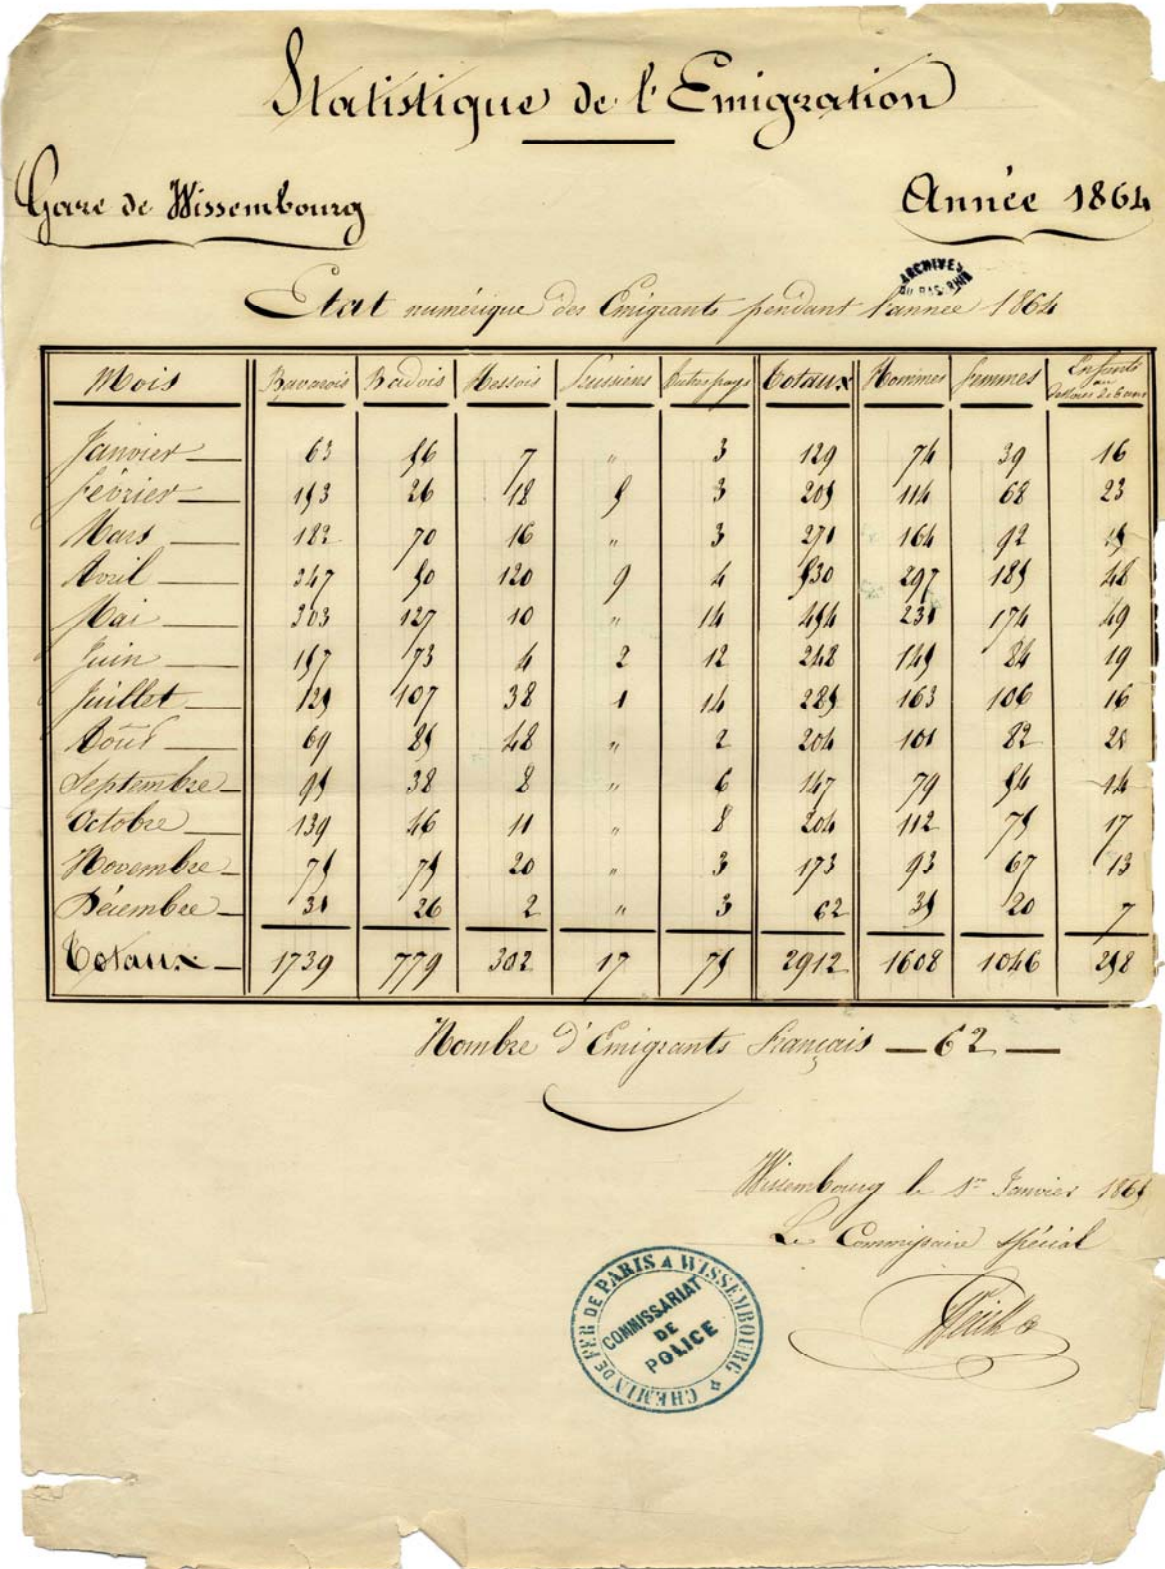 Statistique de l'Emigration
Gare de Wissembourg
Année 1864
ARCHIVES
DU BAS-RHIN
Etat numérique des Emigrants pendant l'année 1864
Mois Bavarois Badois Hessois Prussiens Autres pays Totaux Hommes femmes Enfants au dessous de 6 ans
Janvier 63 56 7 " 3 129 74 39 16
février 153 26 18 5 3 205 114 68 23
Mars 182 70 16 " 3 271 164 92 15
Avril 347 50 120 9 4 530 297 185 48
Mai 303 127 10 " 14 454 231 174 49
Juin 157 73 4 2 12 248 145 84 19
Juillet 125 107 38 1 14 285 163 106 16
Août 69 85 48 " 2 204 101 82 21
Septembre 95 38 8 " 6 147 79 54 14
Octobre 139 46 11 " 8 204 112 75 17
Novembre 75 75 20 " 3 173 93 67 13
Décembre 31 26 2 " 3 62 35 20 7
Totaux 1739 779 302 17 75 2912 1608 1046 258
Nombre d'Emigrants français — 62 —
Wissembourg le 1er Janvier 1865
Le Commissaire spécial
CHEMIN DE FER DE PARIS A WISSEMBOURG
COMMISSARIAT
DE
POLICE